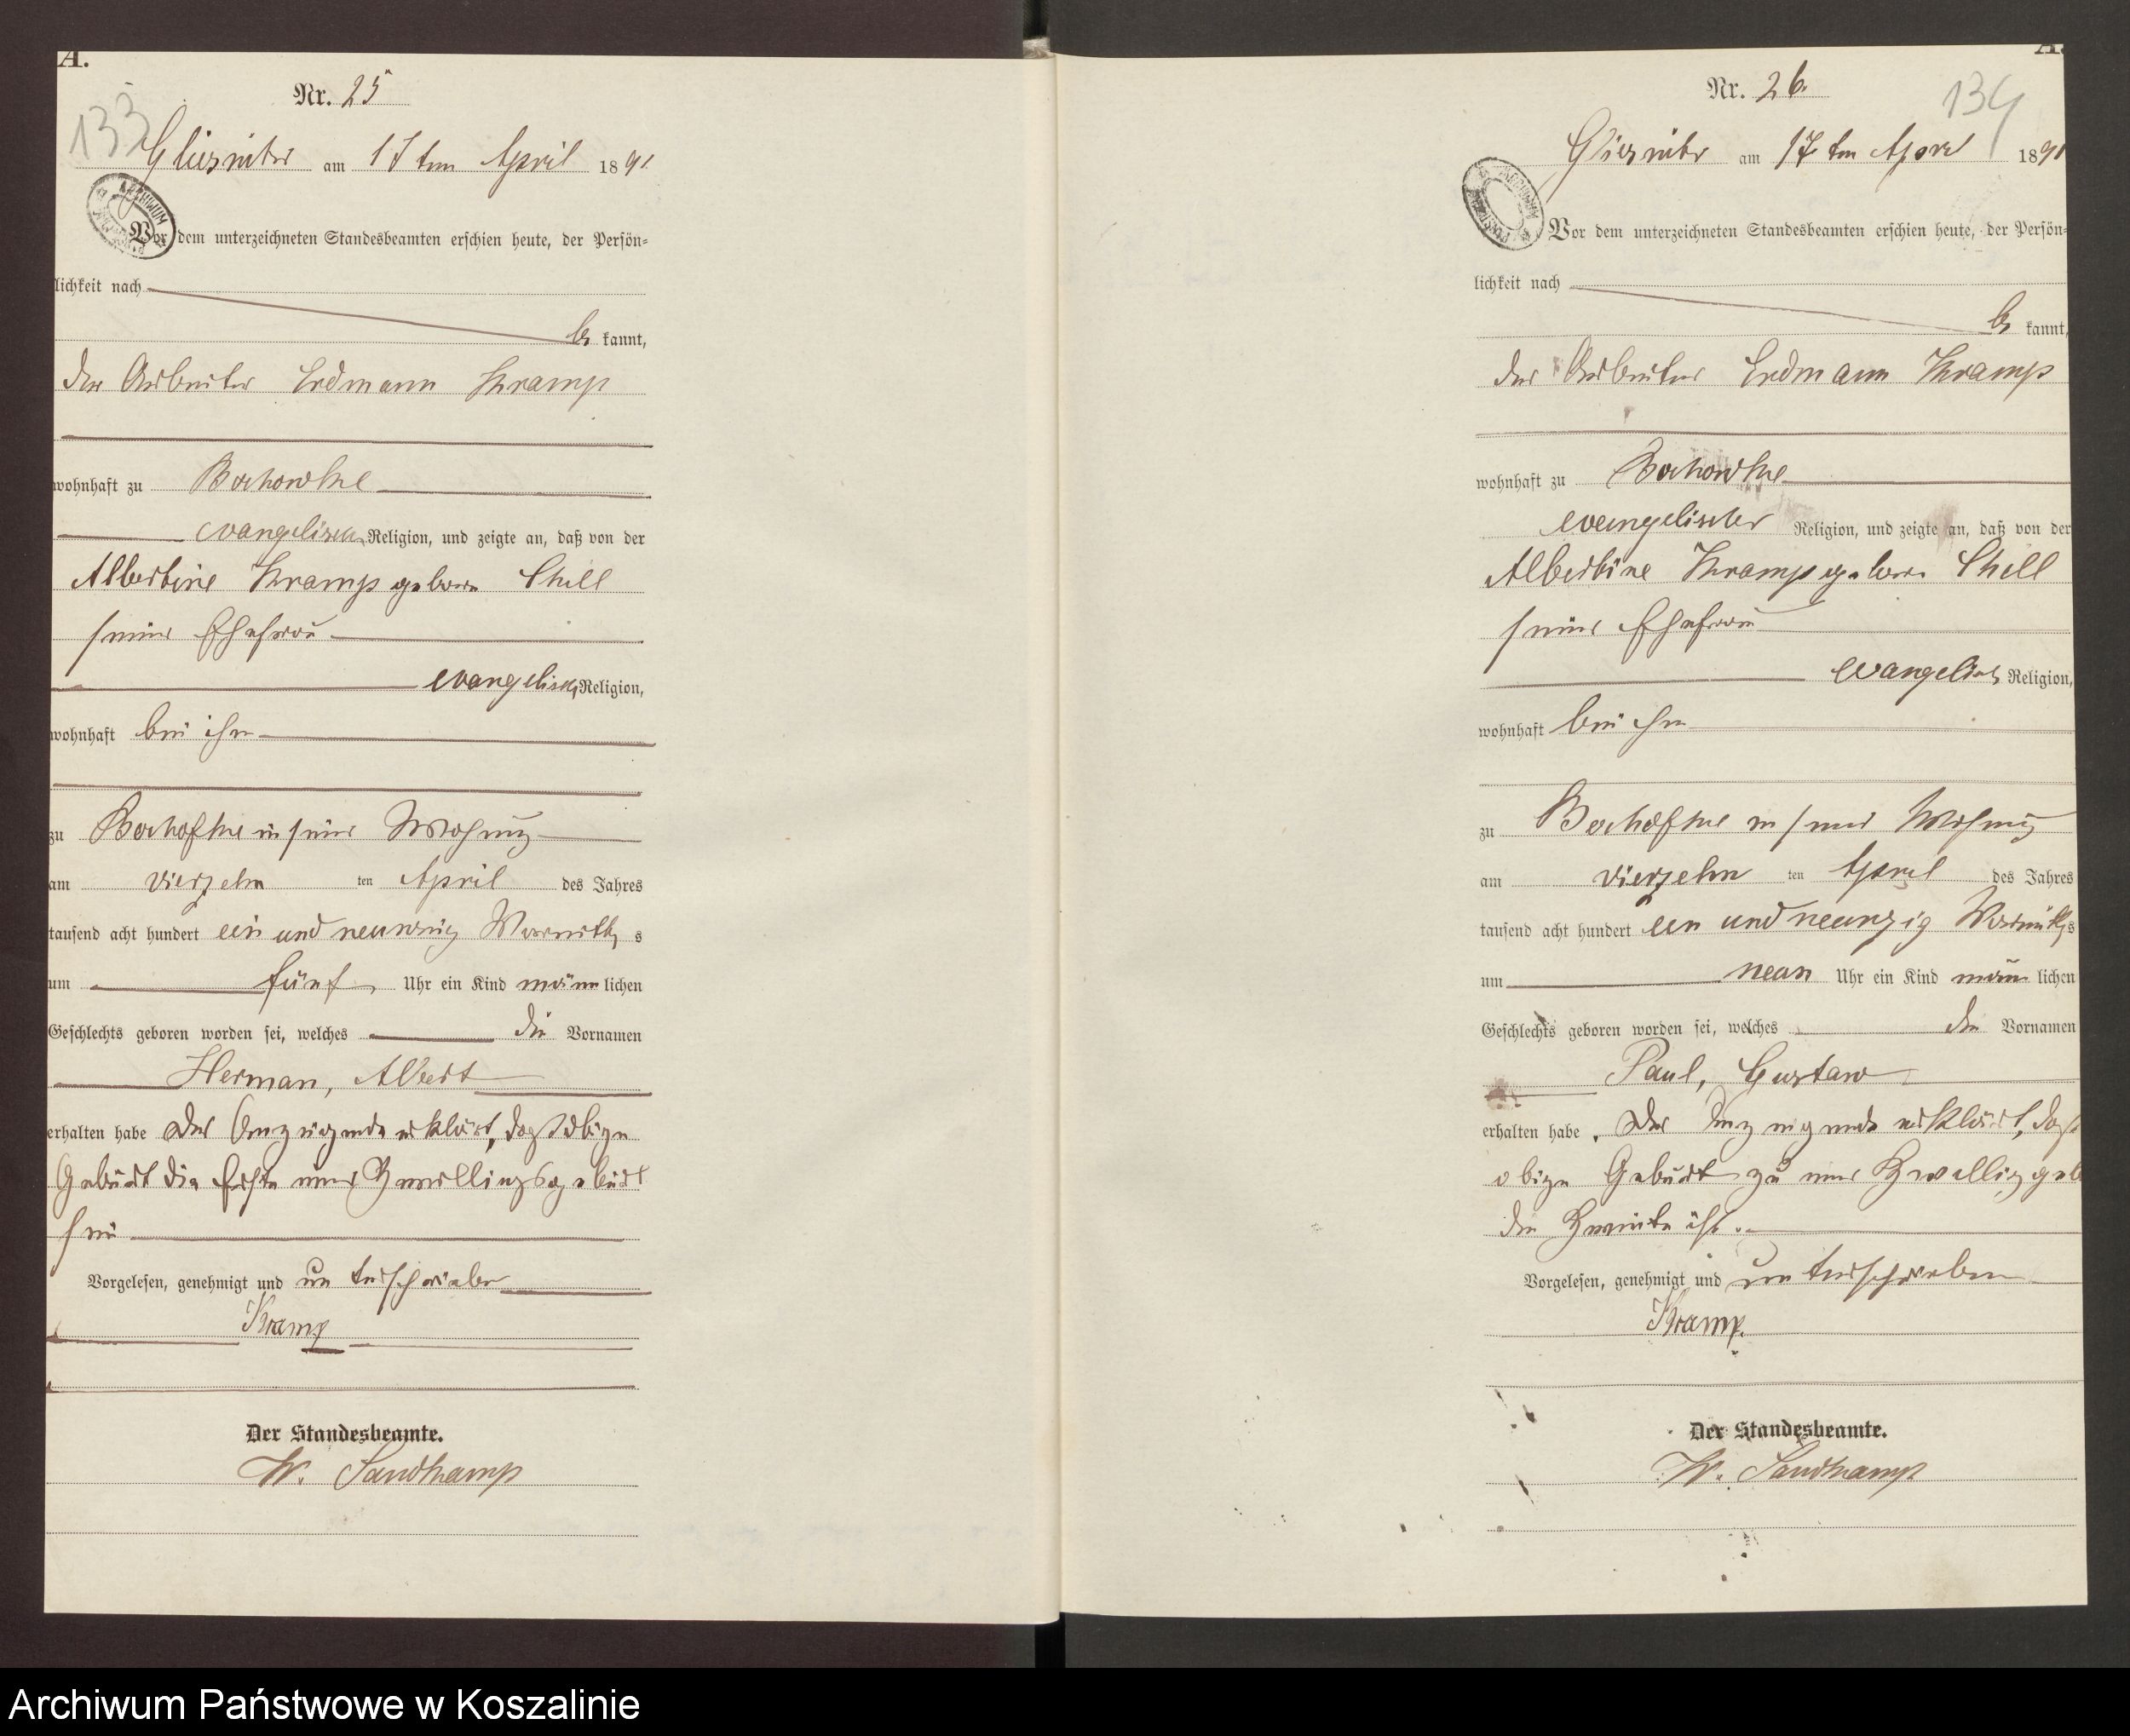 A.
Nr. 25
133
Gliesnitz am 17ten April 1891
Vor dem unterzeichneten Standesbeamten erschien heute, der Persön=
lichkeit nach
be kannt,
der Arbeiter Erdmann Kramp
wohnhaft zu Bochowke
evangelisch Religion, und zeigte an, daß von der
Albertine Kramp geborn
seiner Ehefrau
evangelisch Religion,
wohnhaft bei ihm
zu in seiner Wohnung
am vierzehn ten April des Jahres
tausend acht hundert ein und neunzig Vormittag s
um fünf Uhr ein Kind männ lichen
Geschlechts geboren worden sei, welches die Vornamen
Herman, Albert
erhalten habe Der Anzeigende erklärt, daß obige
Geburt die Erste einer Zwillingsgeburt
sei
Vorgelesen, genehmigt und unterschrieben
Kramp
Der Standesbeamte.
W. Sandkamp
A.
Nr. 26.
134
Gliesnitz am 17ten April 1891
Vor dem unterzeichneten Standesbeamten erschien heute, der Persön=
lichkeit nach
be kannt,
der Arbeiter Erdmann Kramp
wohnhaft zu Bochowke
evangelischer Religion, und zeigte an, daß von der
Albertine Kramp geborn
seiner Ehefrau
evangelisch Religion,
wohnhaft bei ihm
zu in seiner Wohnung
am vierzehn ten April des Jahres
tausend acht hundert ein und neunzig Vormittag s
um neun Uhr ein Kind männ lichen
Geschlechts geboren worden sei, welches die Vornamen
Paul, Gustaw
erhalten habe. Der Anzeigende erklärt, daß
obige Geburt zu einer
die Zweite ist.
Vorgelesen, genehmigt und unterschrieben
Kramp.
Der Standesbeamte.
W. Sandkamp
Archiwum Państwowe w Koszalinie